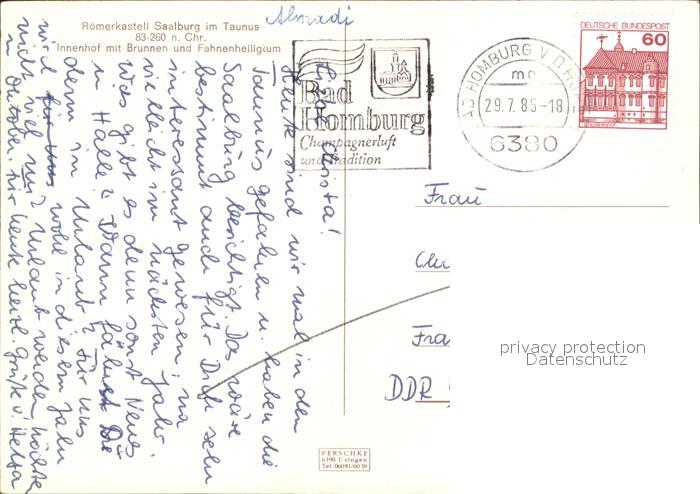 Römerkastell Saalburg im Taunus
83-260 n. Chr.
Innenhof mit Brunnen und Fahnenheiligium
Liebe Christa!
Heute sind wir mal in den
Taunus gefahren u. haben die
Saalburg besichtigt. Das wäre
bestimmt auch für Dich sehr
interessant gewesen, na
vielleicht im nächsten Jahr.
Was gibt es denn sonst Neues
in Halle? Wann fährst Du
denn in Urlaub? Für uns
wird wohl in diesem Jahr
nicht viel mit Urlaub werden, höchstens
im Oktober. Für heute liebe Grüße v. Helga
Bad
Homburg
Champagnerluft
und Tradition
BAD HOMBURG V D H
mc
29.7.85-18
6380
DEUTSCHE BUNDESPOST
60
Frau
Fra
DDR
privacy protection
Datenschutz
PERSCHKE
6390 Usingen
Tel. 06081/6038